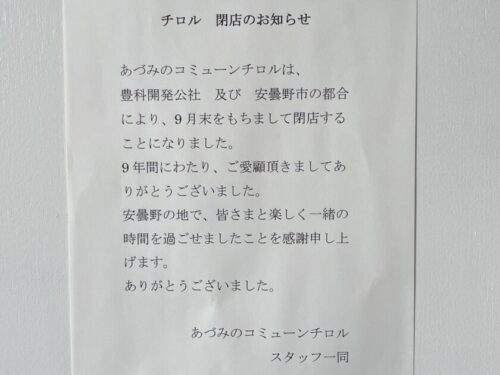 チロル　閉店のお知らせ
あづみのコミューンチロルは、
豊科開発公社　及び　安曇野市の都合
により、9月末をもちまして閉店する
ことになりました。
9年間にわたり、ご愛顧頂きましてあ
りがとうございました。
安曇野の地で、皆さまと楽しく一緒の
時間を過ごせましたことを感謝申し上
げます。
ありがとうございました。
あづみのコミューンチロル
スタッフ一同